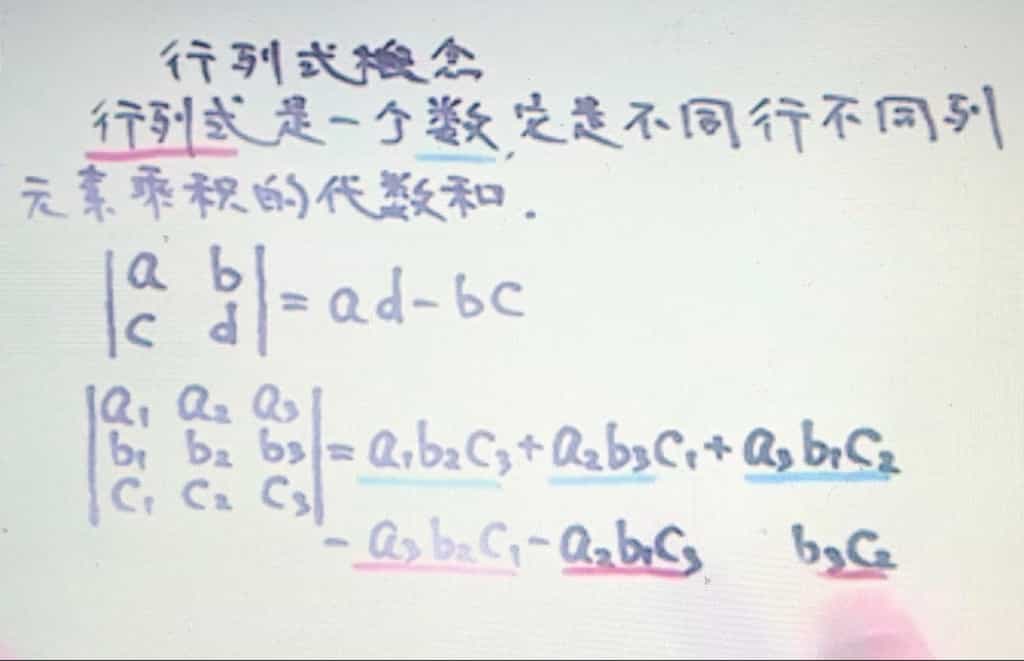 行列式概念
行列式是一个数,它是不同行不同列
元素乘积的代数和.
|a b|
|c d| = ad-bc
|a₁ a₂ a₃|
|b₁ b₂ b₃| = a₁b₂c₃+a₂b₃c₁+a₃b₁c₂
|c₁ c₂ c₃|
-a₃b₂c₁-a₂b₁c₃ b₃c₂